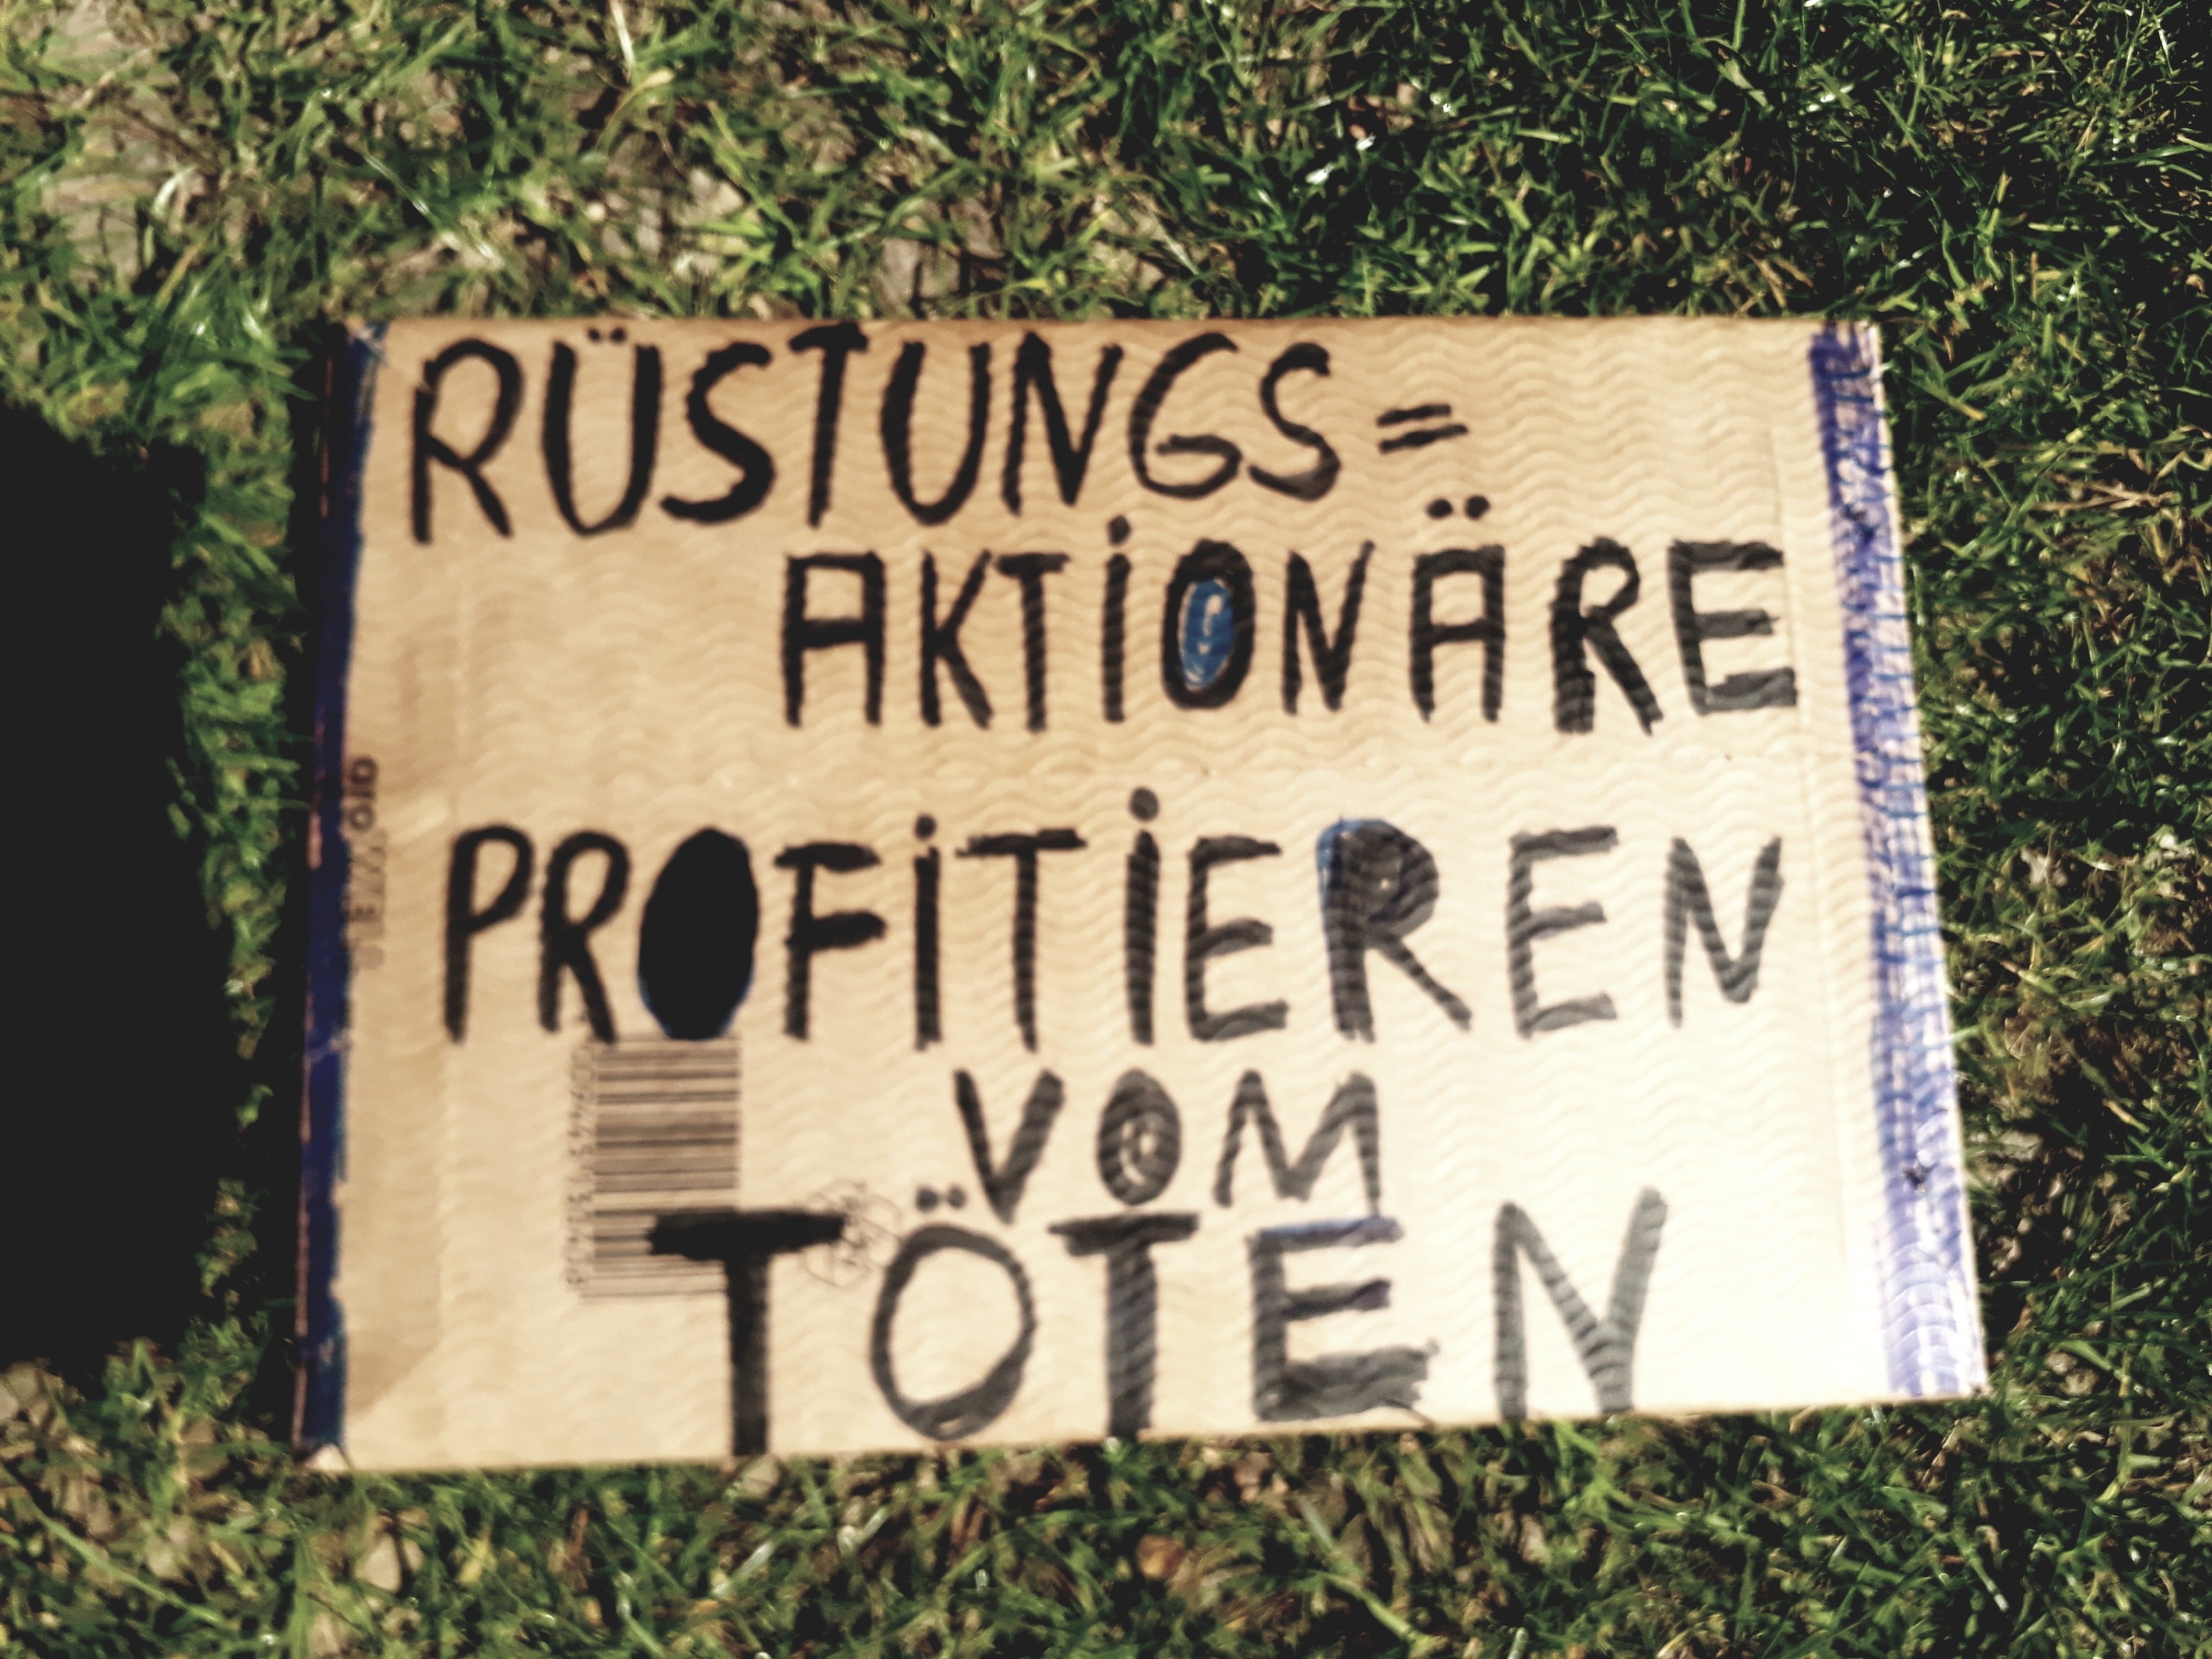 RÜSTUNGS=
AKTiONÄRE
PROFiTiEREN
VOM
TÖTEN